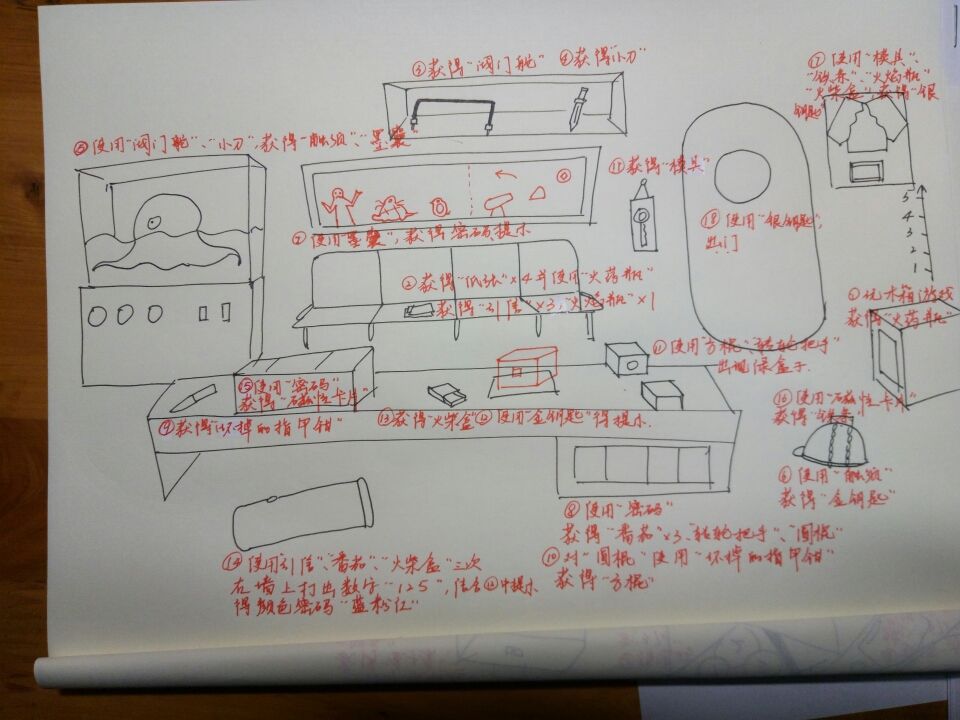 ③获得“阀门舵”
④获得“小刀”
⑰使用“模具”、
“铁条”、“火焰瓶”
“火柴盒”,获得“银
钥匙”
⑤使用“阀门舵”、“小刀”,获得“触须”、“墨囊”
⑦使用“墨囊”,获得密码提示
获得“模具”
⑱使用“银钥匙”,
出门
5
4
3
2
1
②获得“纸张”×4并使用“火药瓶”
获得“引信”×3、“火焰瓶”×1
①玩木箱游戏
获得“火药瓶”
⑪使用“方棍”、“转轮把手”
出现绿盒子.
⑮使用“密码”
获得“石磁性卡片”
⑨获得“坏掉的指甲钳”
⑬获得“火柴盒”
⑫使用“金钥匙”得提示.
⑯使用“石磁性卡片”
获得“铁条”
⑥使用“触须”
获得“金钥匙”
⑧使用“密码”
获得“番茄”×3、“转轮把手”、“圆棍”
⑩对“圆棍”使用“坏掉的指甲钳”
获得“方棍”
⑭使用“引信”、“番茄”、“火柴盒”三次
在墙上打出数字“125”,结合⑫中提示
得颜色密码“蓝粉红”